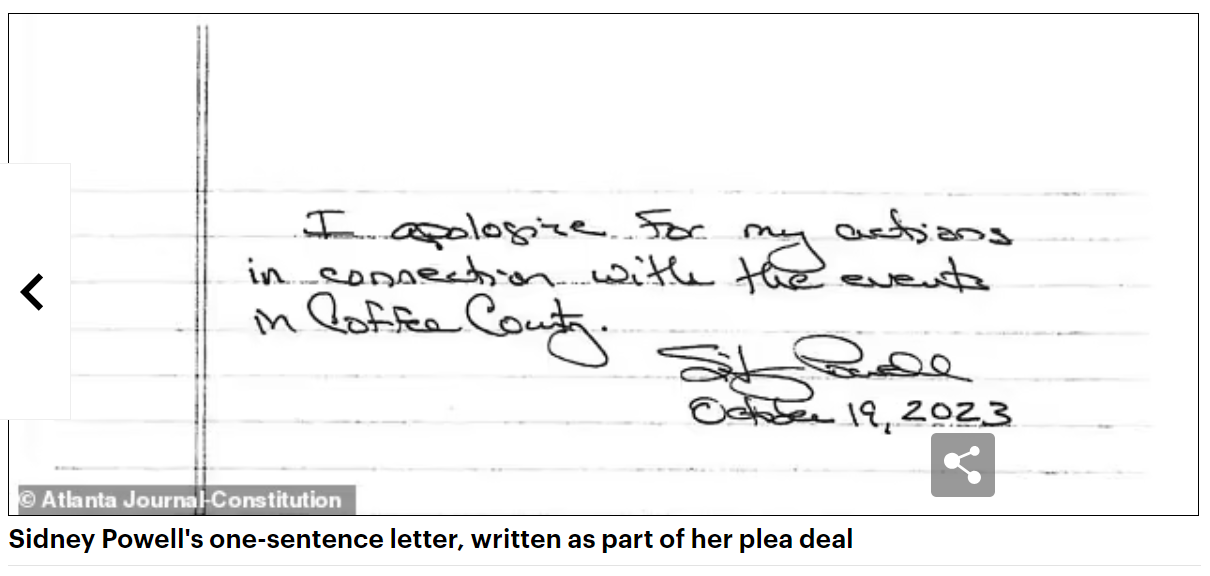 I apologize for my actions
in connection with the events
in Coffee County.
Sidney Powell
October 19, 2023
© Atlanta Journal-Constitution
Sidney Powell's one-sentence letter, written as part of her plea deal